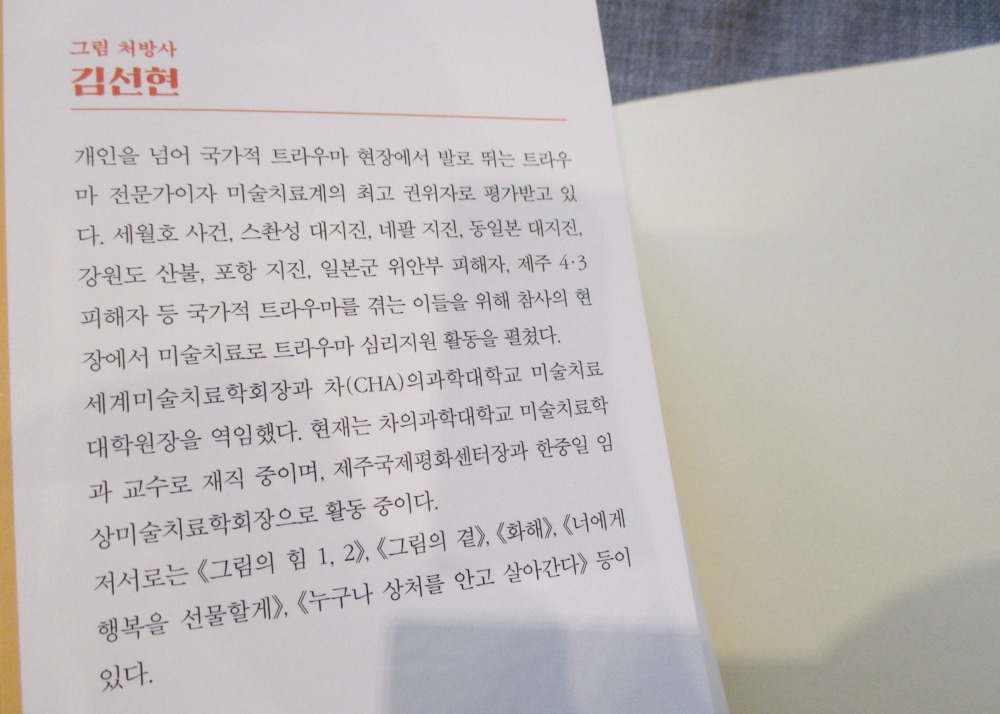 그림 처방사
김선현
개인을 넘어 국가적 트라우마 현장에서 발로 뛰는 트라우
마 전문가이자 미술치료계의 최고 권위자로 평가받고 있
다. 세월호 사건, 스촨성 대지진, 네팔 지진, 동일본 대지진,
강원도 산불, 포항 지진, 일본군 위안부 피해자, 제주 4·3
피해자 등 국가적 트라우마를 겪는 이들을 위해 참사의 현
장에서 미술치료로 트라우마 심리지원 활동을 펼쳤다.
세계미술치료학회장과 차(CHA)의과학대학교 미술치료
대학원장을 역임했다. 현재는 차의과학대학교 미술치료학
과 교수로 재직 중이며, 제주국제평화센터장과 한중일 임
상미술치료학회장으로 활동 중이다.
저서로는 《그림의 힘 1, 2》, 《그림의 곁》, 《화해》, 《너에게
행복을 선물할게》, 《누구나 상처를 안고 살아간다》 등이
있다.